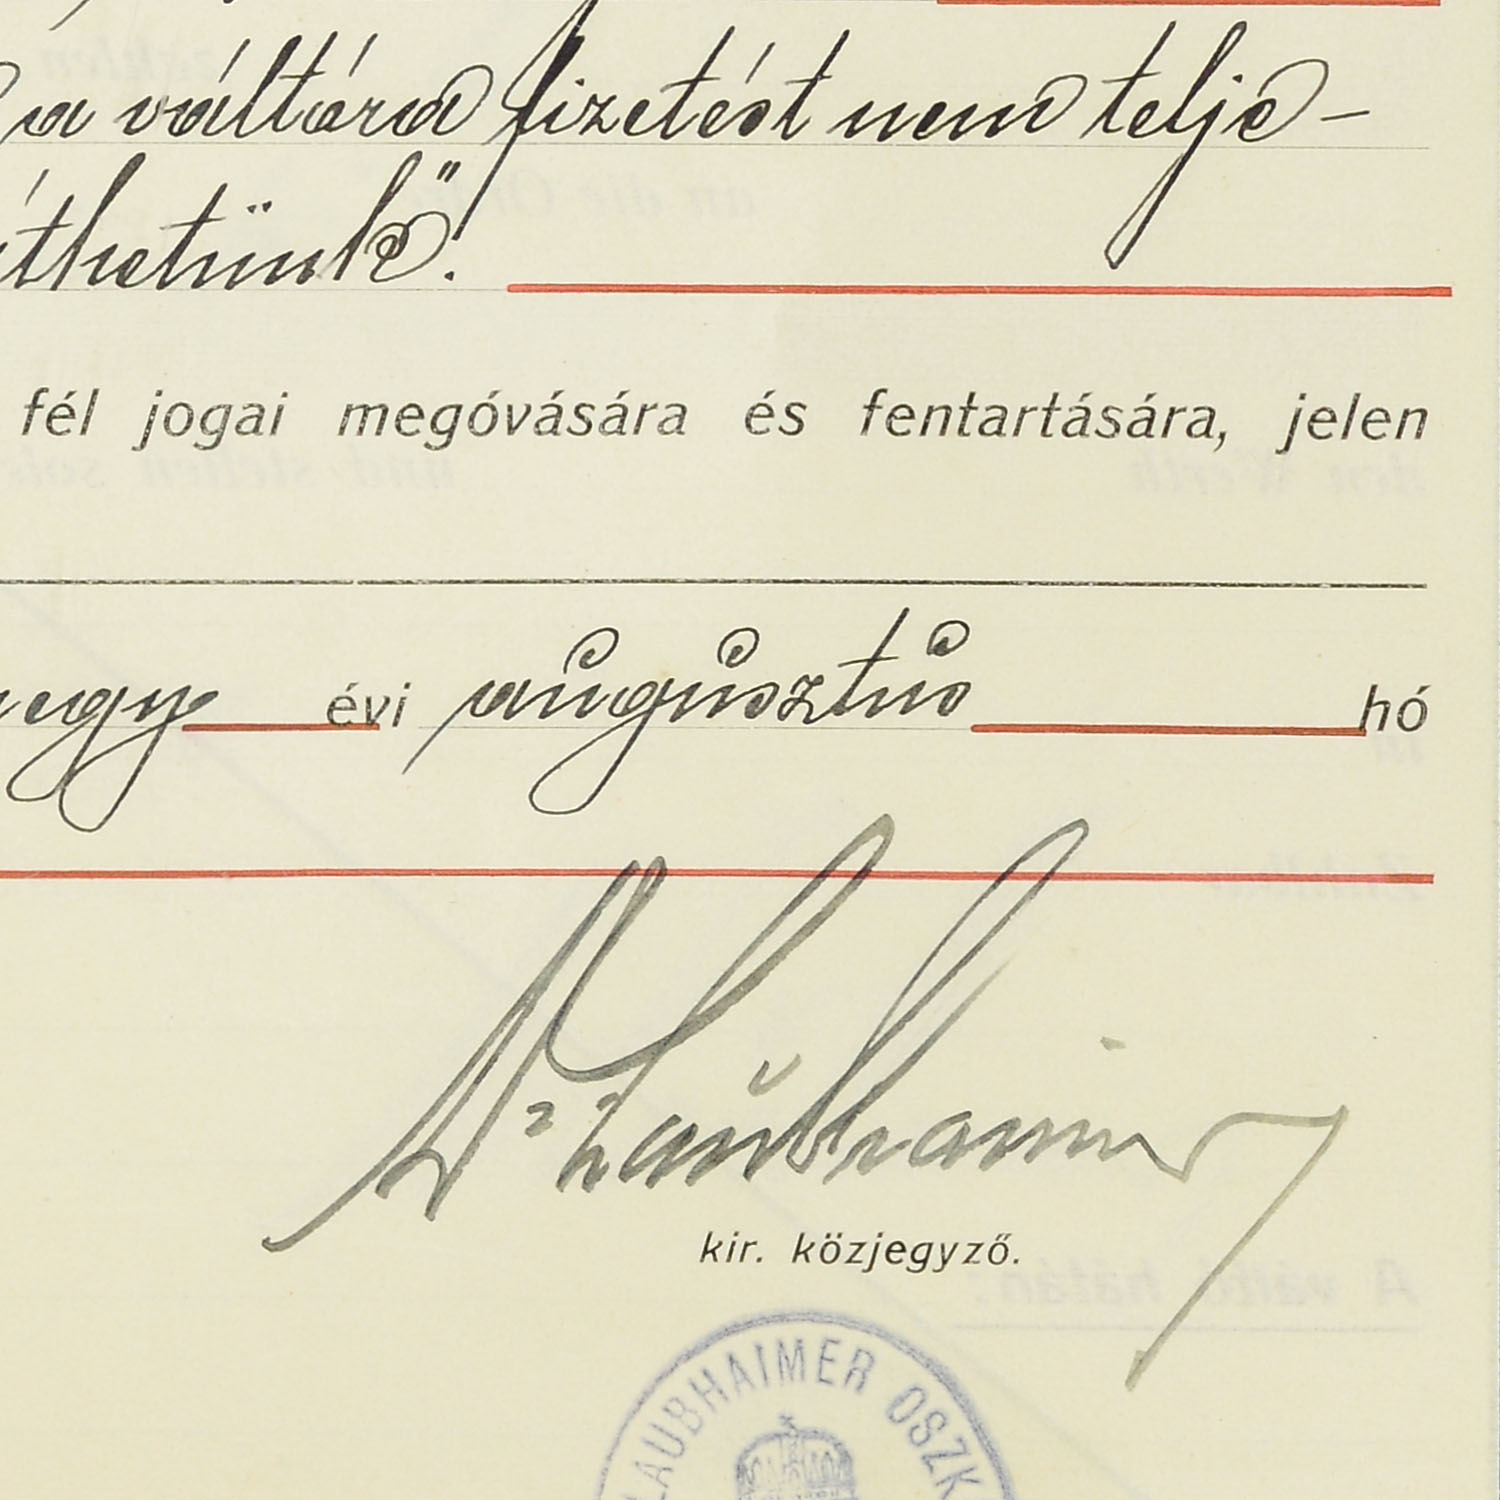 a váltóra fizetést nem telje-
íthetünk".
fél jogai megóvására és fentartására, jelen
egy évi augusztus hó
Dr Laubhaimer
kir. közjegyző.
LAUBHAIMER OSZK